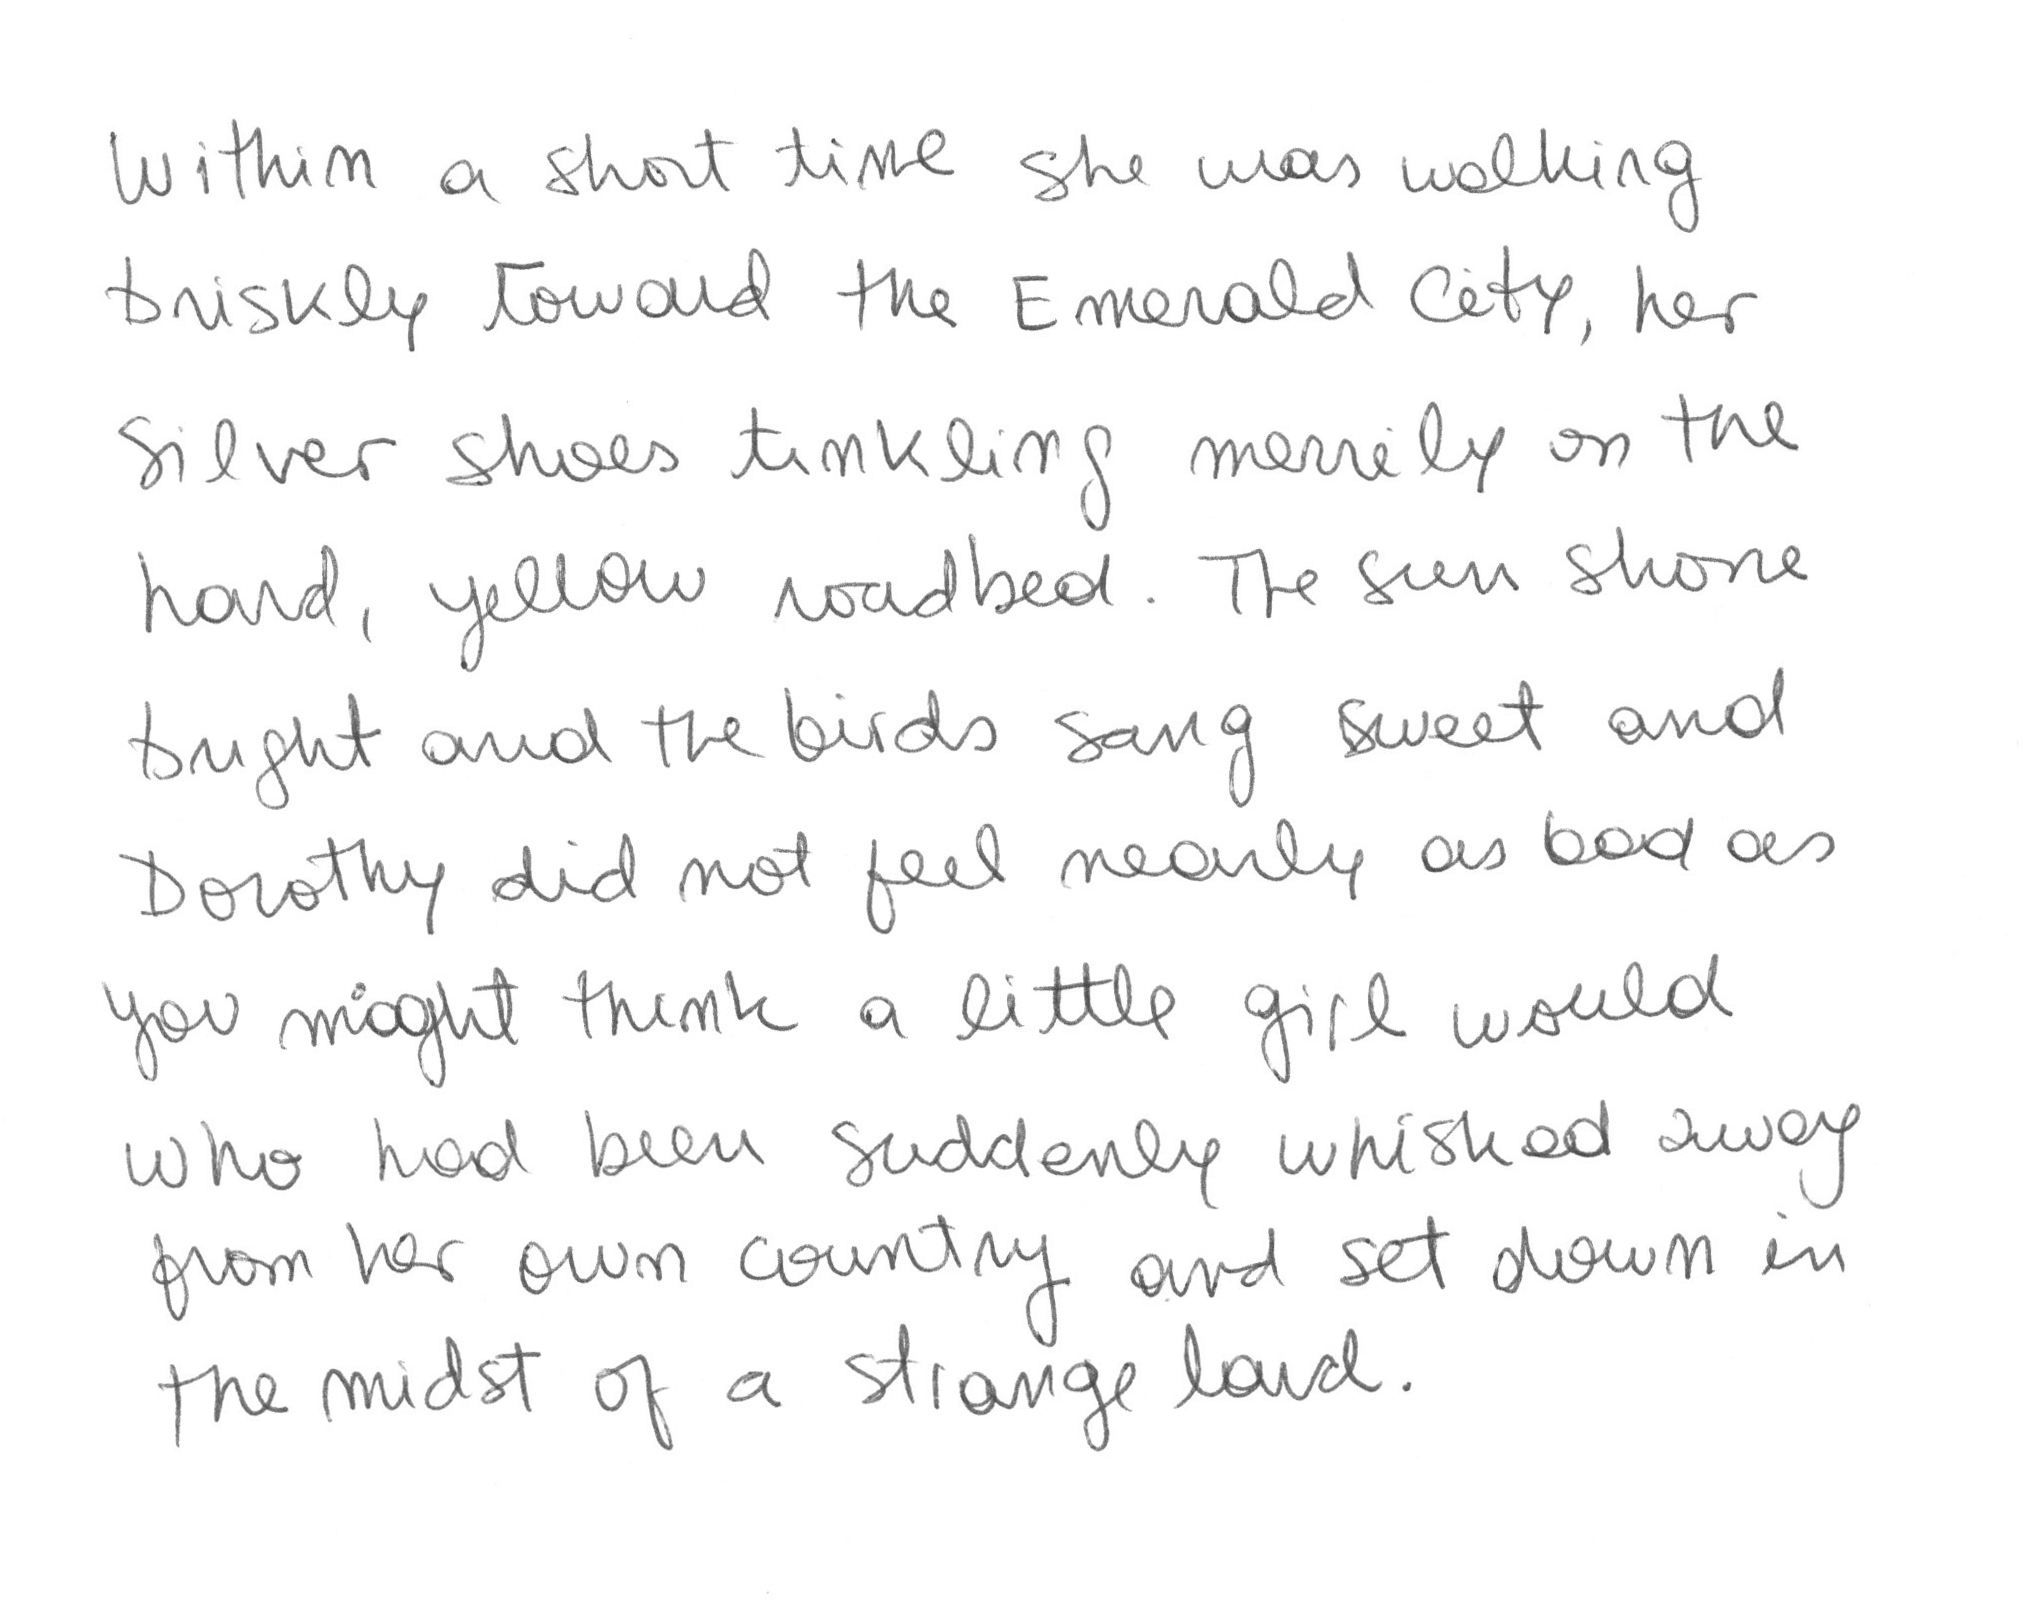 Within a short time she was walking
briskly toward the Emerald City, her
silver shoes tinkling merrily on the
hard, yellow roadbed. The sun shone
bright and the birds sang sweet and
Dorothy did not feel nearly as bad as
you might think a little girl would
who had been suddenly whisked away
from her own country and set down in
the midst of a strange land.